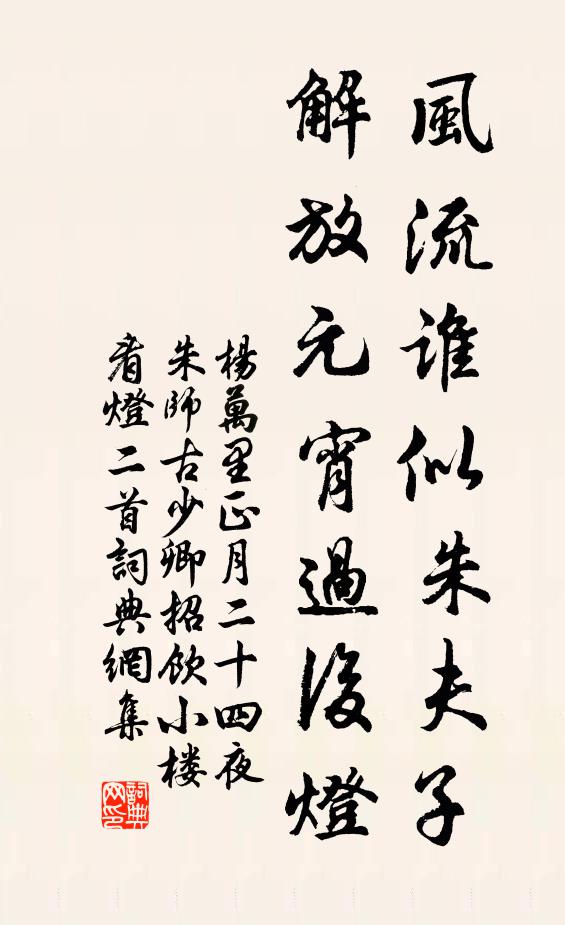 風流誰似朱夫子
解放元宵過後燈
楊萬里正月二十四夜
朱師古少卿招飲小楼
看燈二首詞典網集
詞典网印